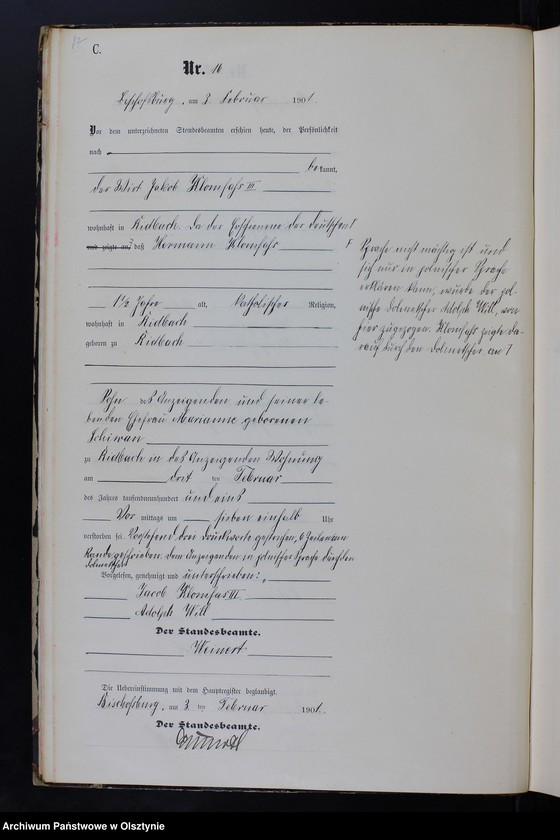 C.
Nr. 16
Bischofsburg, am 3 Februar 1901.
Vor dem unterzeichneten Standesbeamten erschien heute, der Persönlichkeit
nach
bekannt,
der Wirt Jakob Klomfass III
wohnhaft in Ridbach. Da der Erschienene der deutschen Γ
und zeigte an, daß Hermann Klomfass
Γ Sprache nicht mächtig ist und
sich nur in polnischer Sprache
erklären kann, wurde der pol-
nische Dolmetscher Adolph Will, von
hier zugezogen. Klomfass zeigte da-
rauf durch den Dolmetscher an
1 1/2 Jahre alt, katholischer Religion,
wohnhaft in Ridbach
geboren zu Ridbach
Sohn des Anzeigenden und seiner le-
benden Ehefrau Marianne geborenen
Schiwan
zu Ridbach in des Anzeigenden Wohnung
am drit ten Februar
des Jahres tausendneunhundert und eins
Vor mittags um sieben einhalb Uhr
verstorben sei. Vorstehend drei Druckworte gestrichen, 6 Zeilen am
Rande geschrieben. dem Anzeigenden in polnischer Sprache durch den
Dolmetscher
Vorgelesen, genehmigt und unterschrieben:
Jacob Klomfas III
Adolph Will
Der Standesbeamte.
Weinert
Die Uebereinstimmung mit dem Hauptregister beglaubigt.
Bischofsburg, am 3. ten Februar 1901.
Der Standesbeamte.
Archiwum Państwowe w Olsztynie